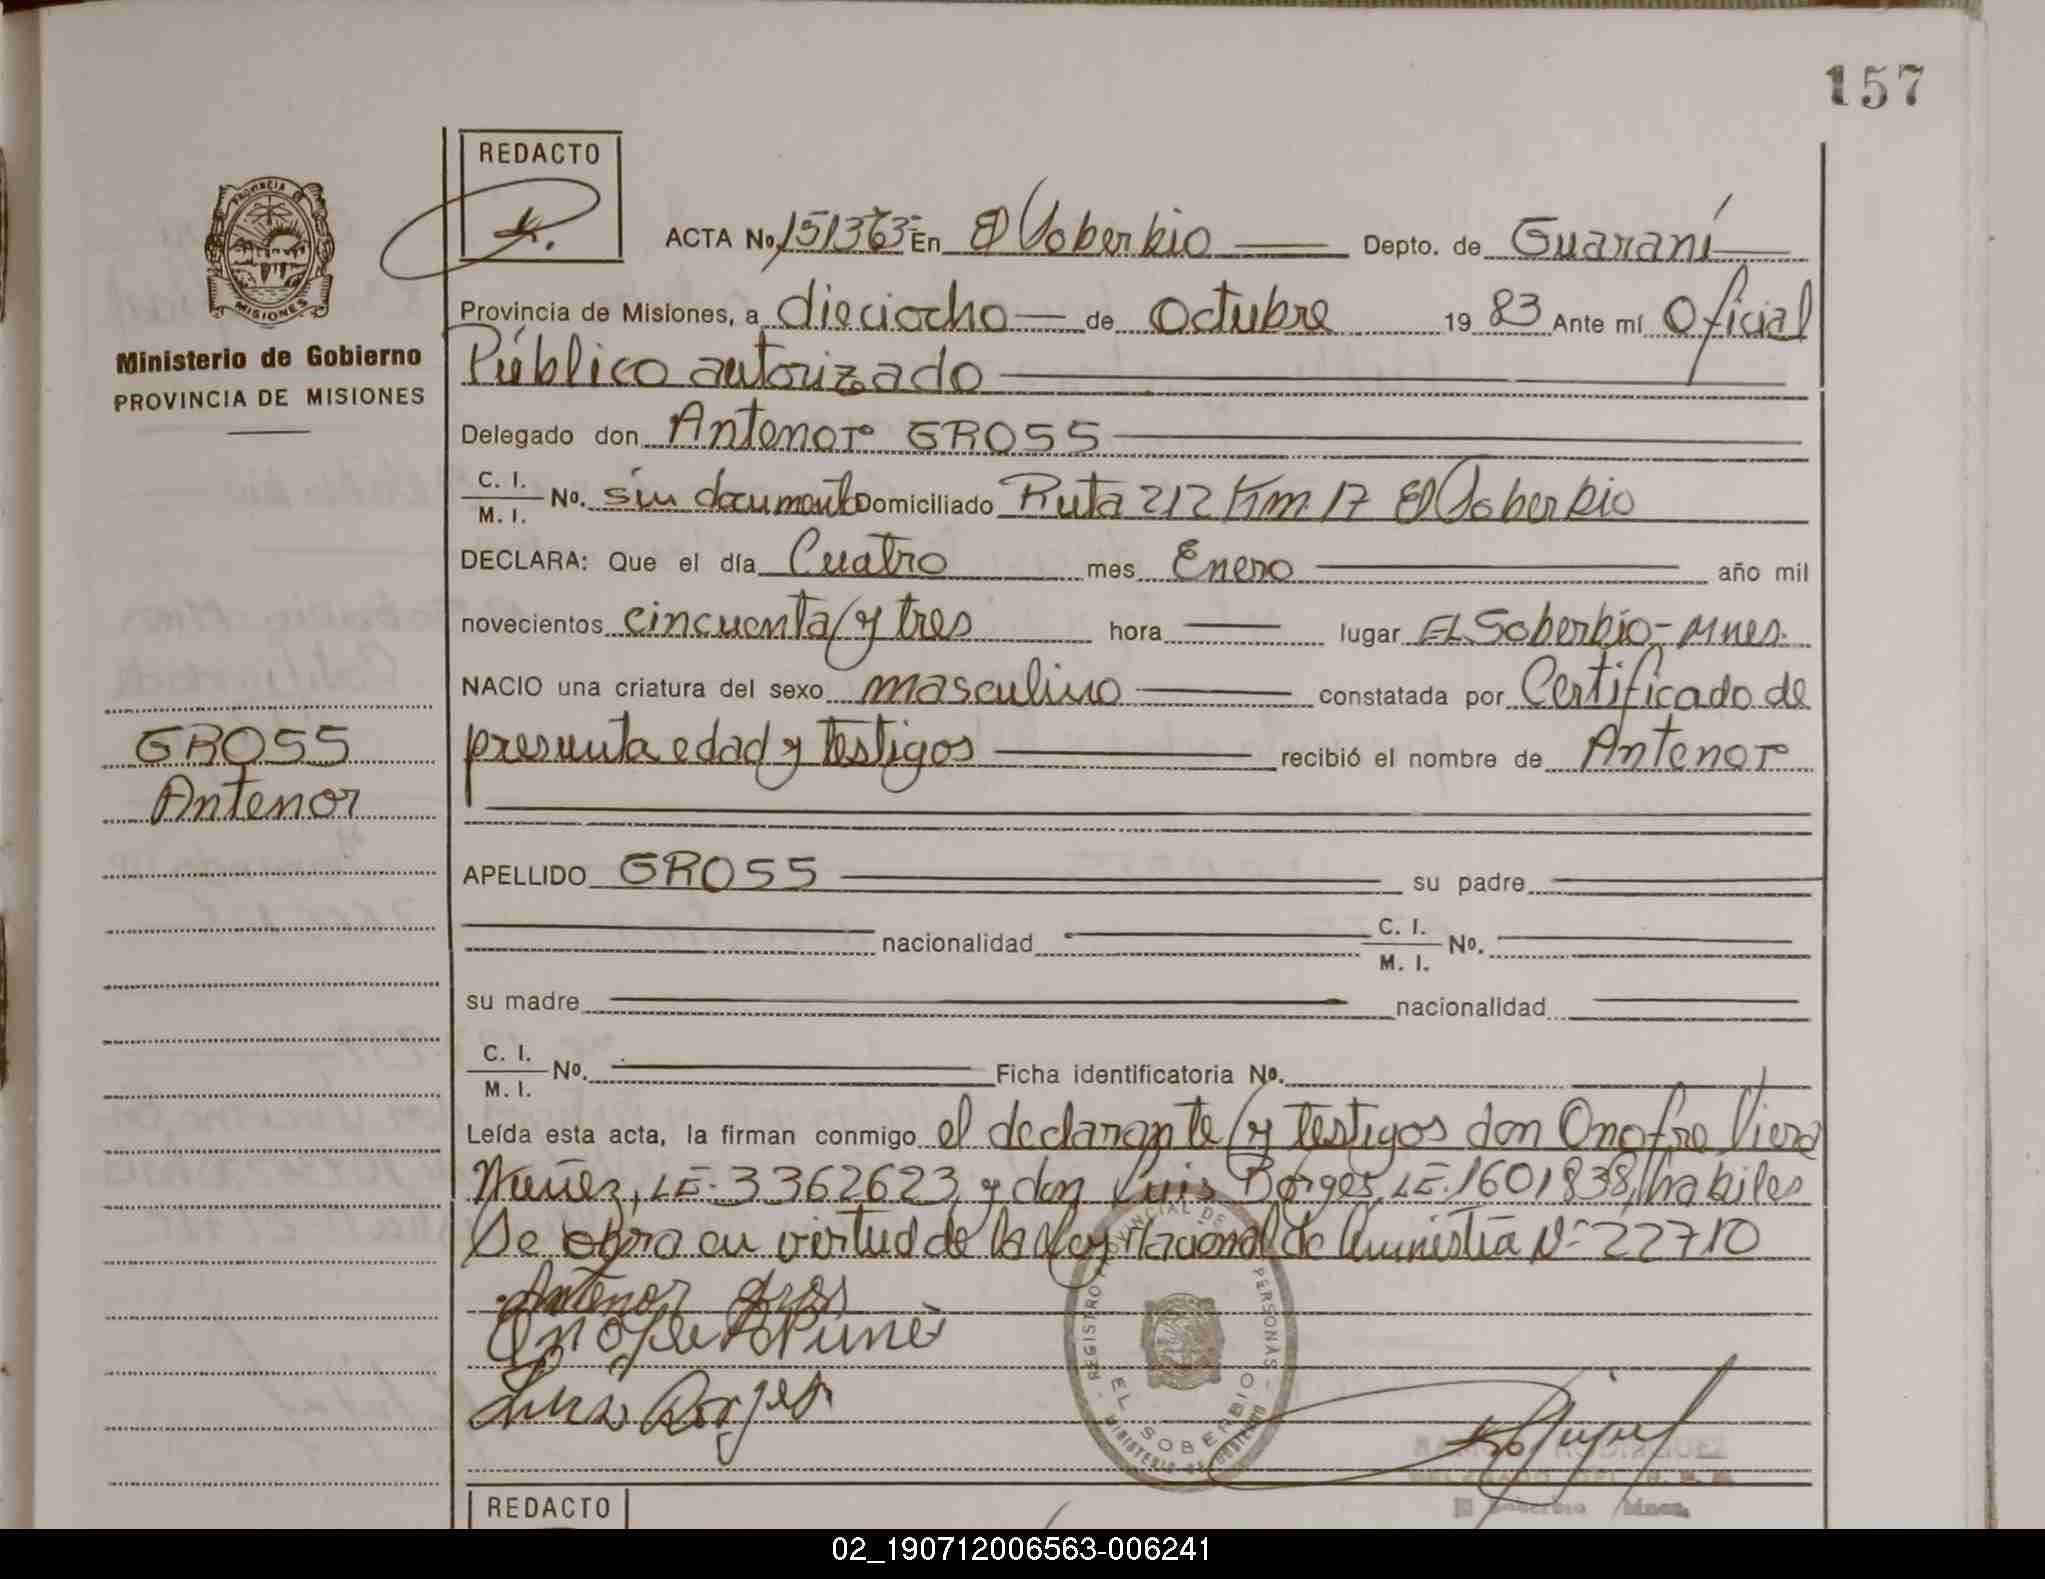 157
REDACTO
PROVINCIA
MISIONES
Ministerio de Gobierno
PROVINCIA DE MISIONES
ACTA No 151363 En El Soberbio Depto. de Guaraní
Provincia de Misiones, a dieciocho de Octubre 19 83 Ante mí Oficial
Público autorizado
Delegado don Antenor GROSS
C. I.
M. I. No. sin documento Domiciliado Ruta 212 Km. 17 El Soberbio
DECLARA: Que el día Cuatro mes Enero año mil
novecientos cincuenta y tres hora lugar EL Soberbio - Mnes.
NACIO una criatura del sexo masculino constatada por Certificado de
presunta edad y testigos recibió el nombre de Antenor
GROSS
Antenor
APELLIDO GROSS su padre
nacionalidad C. I.
M. I. No.
su madre nacionalidad
C. I.
M. I. No. Ficha identificatoria No.
Leída esta acta, la firman conmigo el declarante y testigos don Onofre Viera
Nuñez, LE. 3362623 y don Luis Borges, LE. 1601838, habiles
Se obra en virtud de la Ley Nacional de Amnistia Nº 22710
Antenor gros
Luis Borges
REGISTRO PROVINCIAL DE PERSONAS
EL SOBERBIO
MINISTERIO DE GOBIERNO
El Soberbio Mnes.
REDACTO
02_190712006563-006241